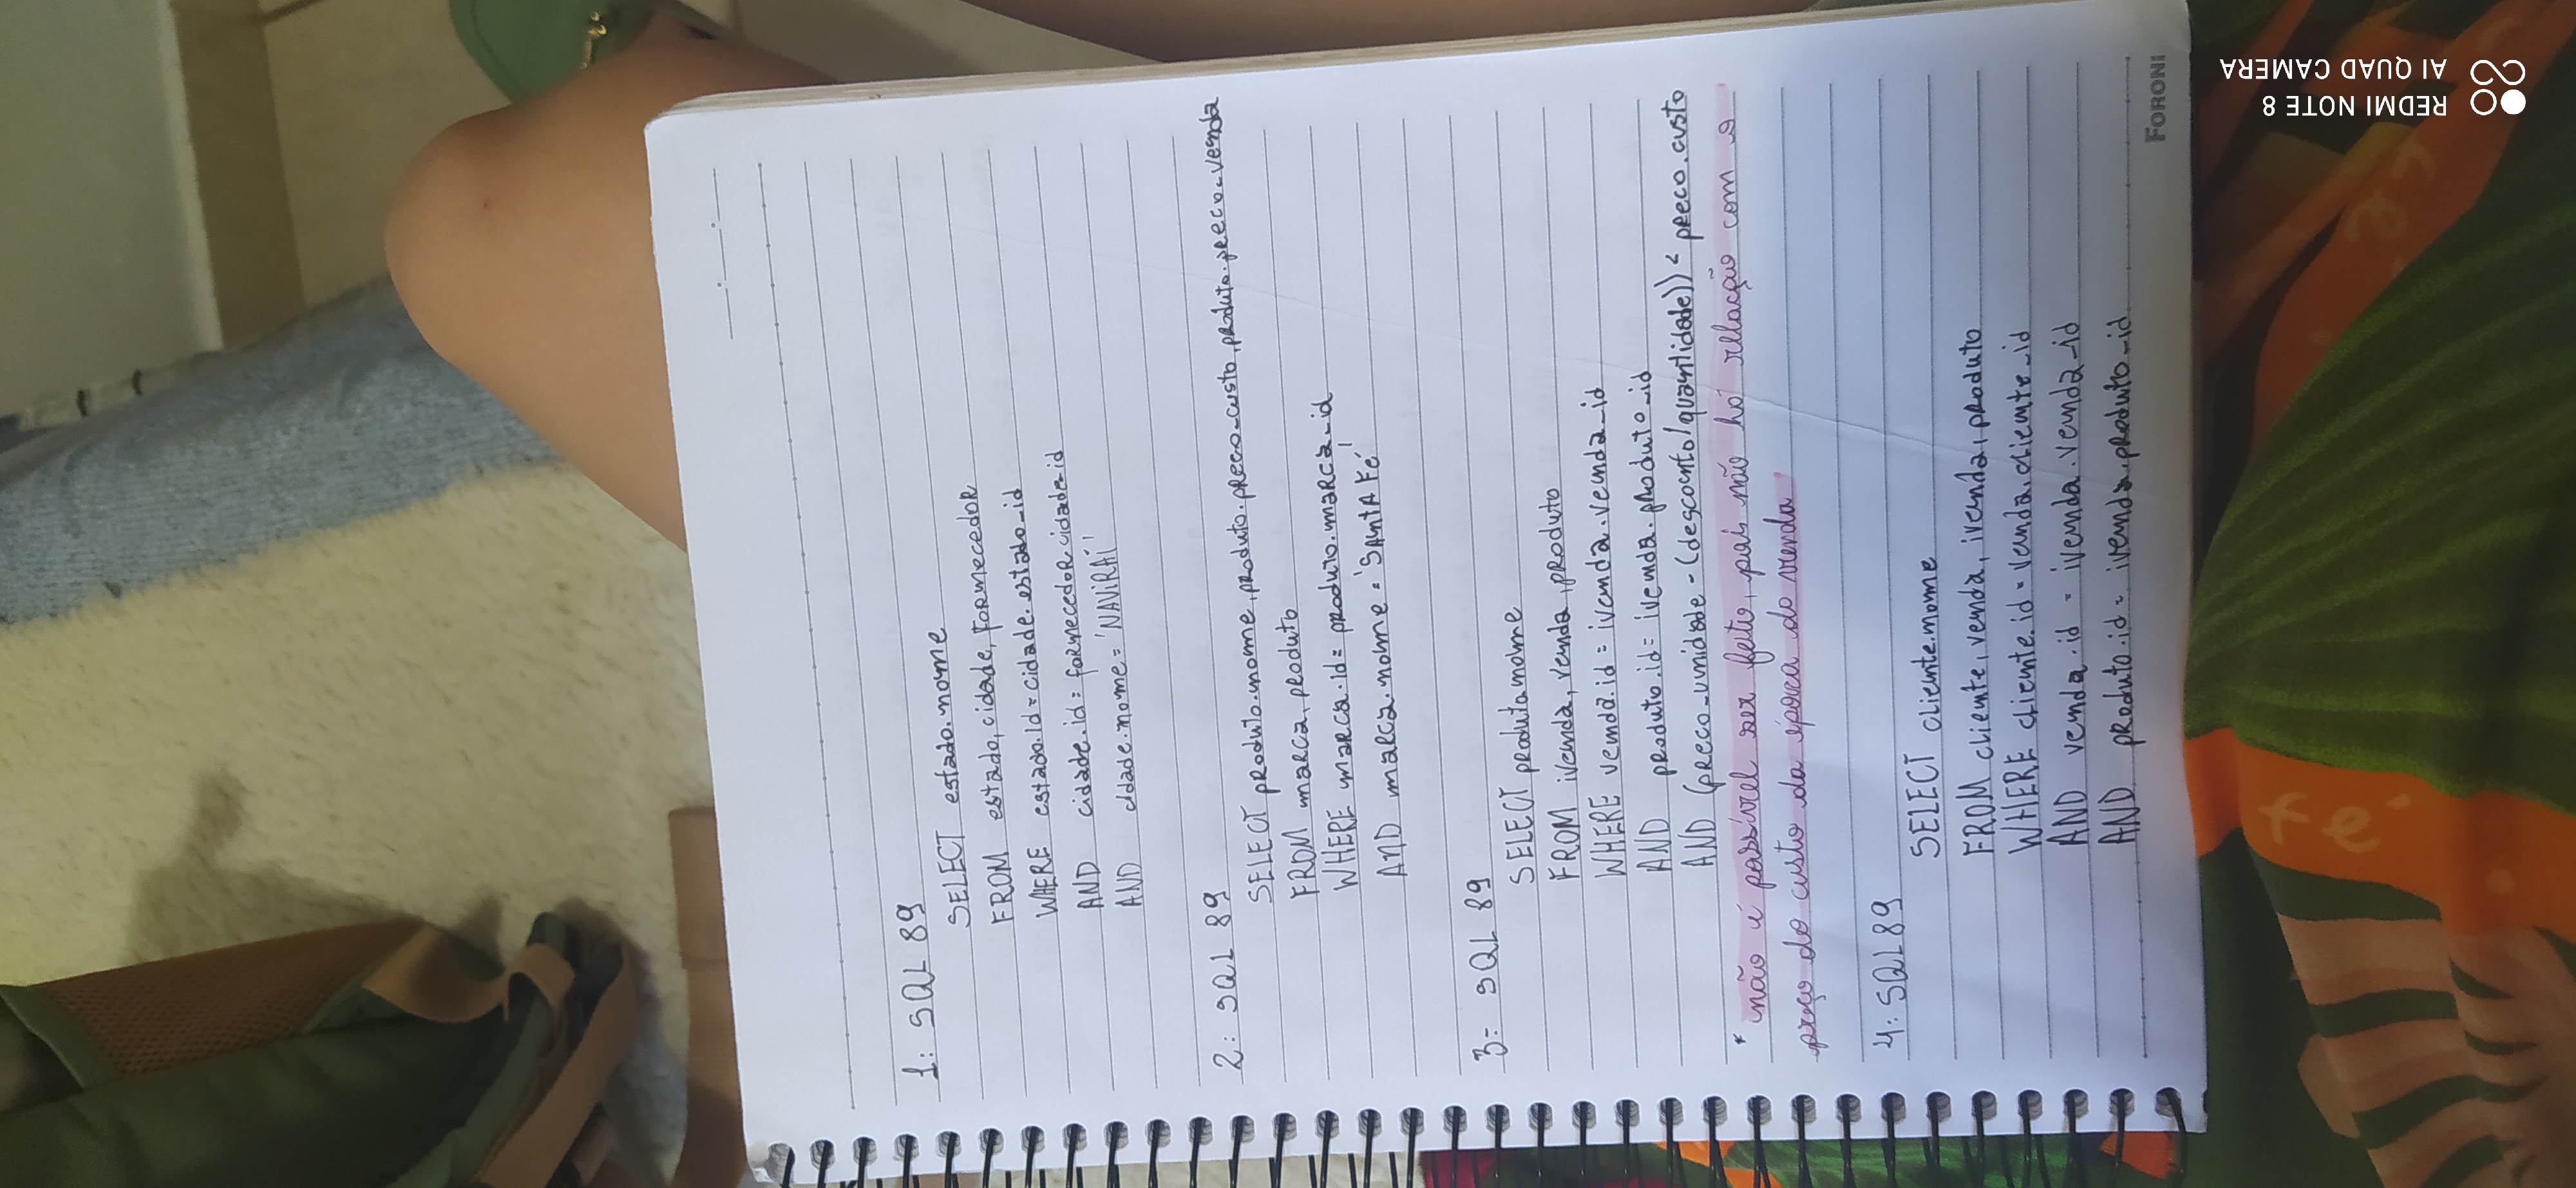 1: SQL 89
SELECT estado.nome
FROM estado, cidade, fornecedor
WHERE estado.id = cidade.estado_id
AND cidade.id = fornecedor.cidade_id
AND cidade.nome = 'NAViRAí'
2: SQL 89
SELECT produto.nome, produto.preco_custo, produto.preco_venda
FROM marca, produto
WHERE marca.id = produto.marca_id
AND marca.nome = 'SAntA Fé'
3: SQL 89
SELECT produto.nome
FROM ivenda, venda, produto
WHERE venda.id = ivenda.venda_id
AND produto.id = ivenda.produto_id
AND (preco_unidade - (desconto/quantidade)) < preco.custo
* não é possível ser feito, pois não há relação com o
preço do custo da época da venda
4: SQL 89
SELECT cliente.nome
FROM cliente, venda, ivenda, produto
WHERE cliente.id = venda.cliente_id
AND venda.id = ivenda.venda_id
AND produto.id = ivenda.produto_id
FORONI
REDMI NOTE 8
AI QUAD CAMERA